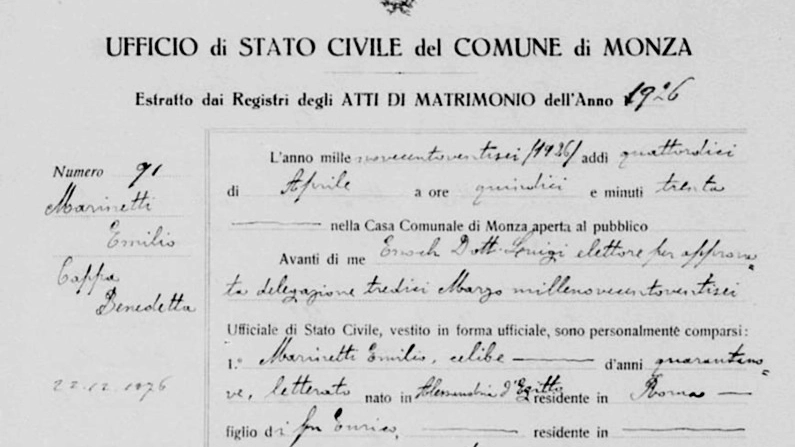 UFFICIO di STATO CIVILE del COMUNE di MONZA
Estratto dai Registri degli ATTI DI MATRIMONIO dell'Anno 1926
Numero 91
Marinetti
Emilio
Cappa
Benedetta
22.12.1876
L'anno mille novecentoventisei /1926/ addi quattordici
di Aprile a ore quindici e minuti trenta
nella Casa Comunale di Monza aperta al pubblico
Avanti di me Enoch Dott. Luigi elettore per approva=
ta delegazione tredici Marzo millenovecentoventisei
Ufficiale di Stato Civile, vestito in forma ufficiale, sono personalmente comparsi:
1.° Marinetti Emilio, celibe d'anni quarantano=
ve, letterato nato in Alessandria d'Egitto residente in Roma
figlio di fu Enrico, residente in